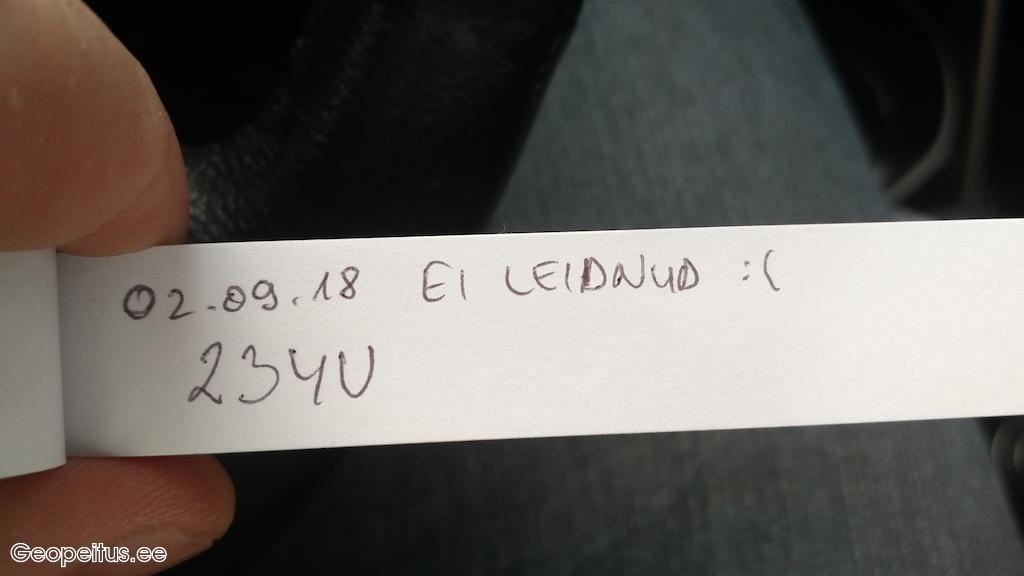 02.09.18 EI LEIDNUD :(
234U
Geopeitus.ee